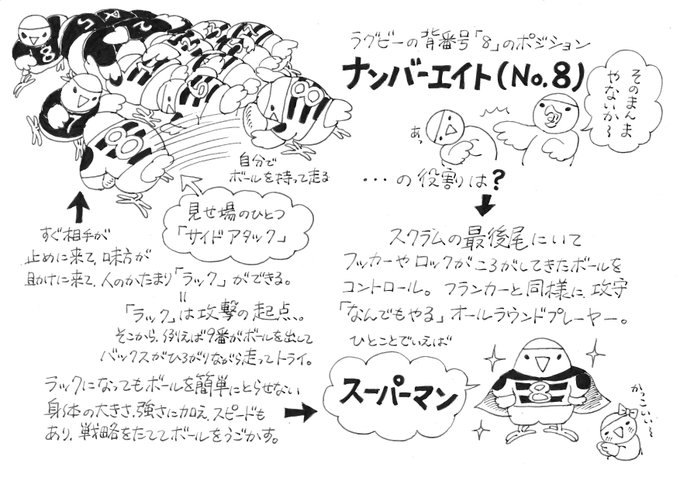 ラグビーの背番号「8」のポジション
ナンバーエイト(No.8)
そのまんま
やないか〜
あっ
…の役割は?
スクラムの最後尾にいて
フッカーやロックがころがしてきたボールを
コントロール。フランカーと同様に、攻守
「なんでもやる」オールラウンドプレーヤー。
ひとことでいえば
スーパーマン
かっこいい〜
自分で
ボールを持って走る
見せ場のひとつ
「サイドアタック」
すぐ相手が
止めに来て、味方が
助けに来て、人のかたまり「ラック」ができる。
=
「ラック」は攻撃の起点。
そこから、例えば9番がボールを出して
バックスがひろがりながら走ってトライ。
ラックになってもボールを簡単にとらせない
身体の大きさ、強さに加え、スピードも
あり、戦略をたててボールをうごかす。
8
8
8
8